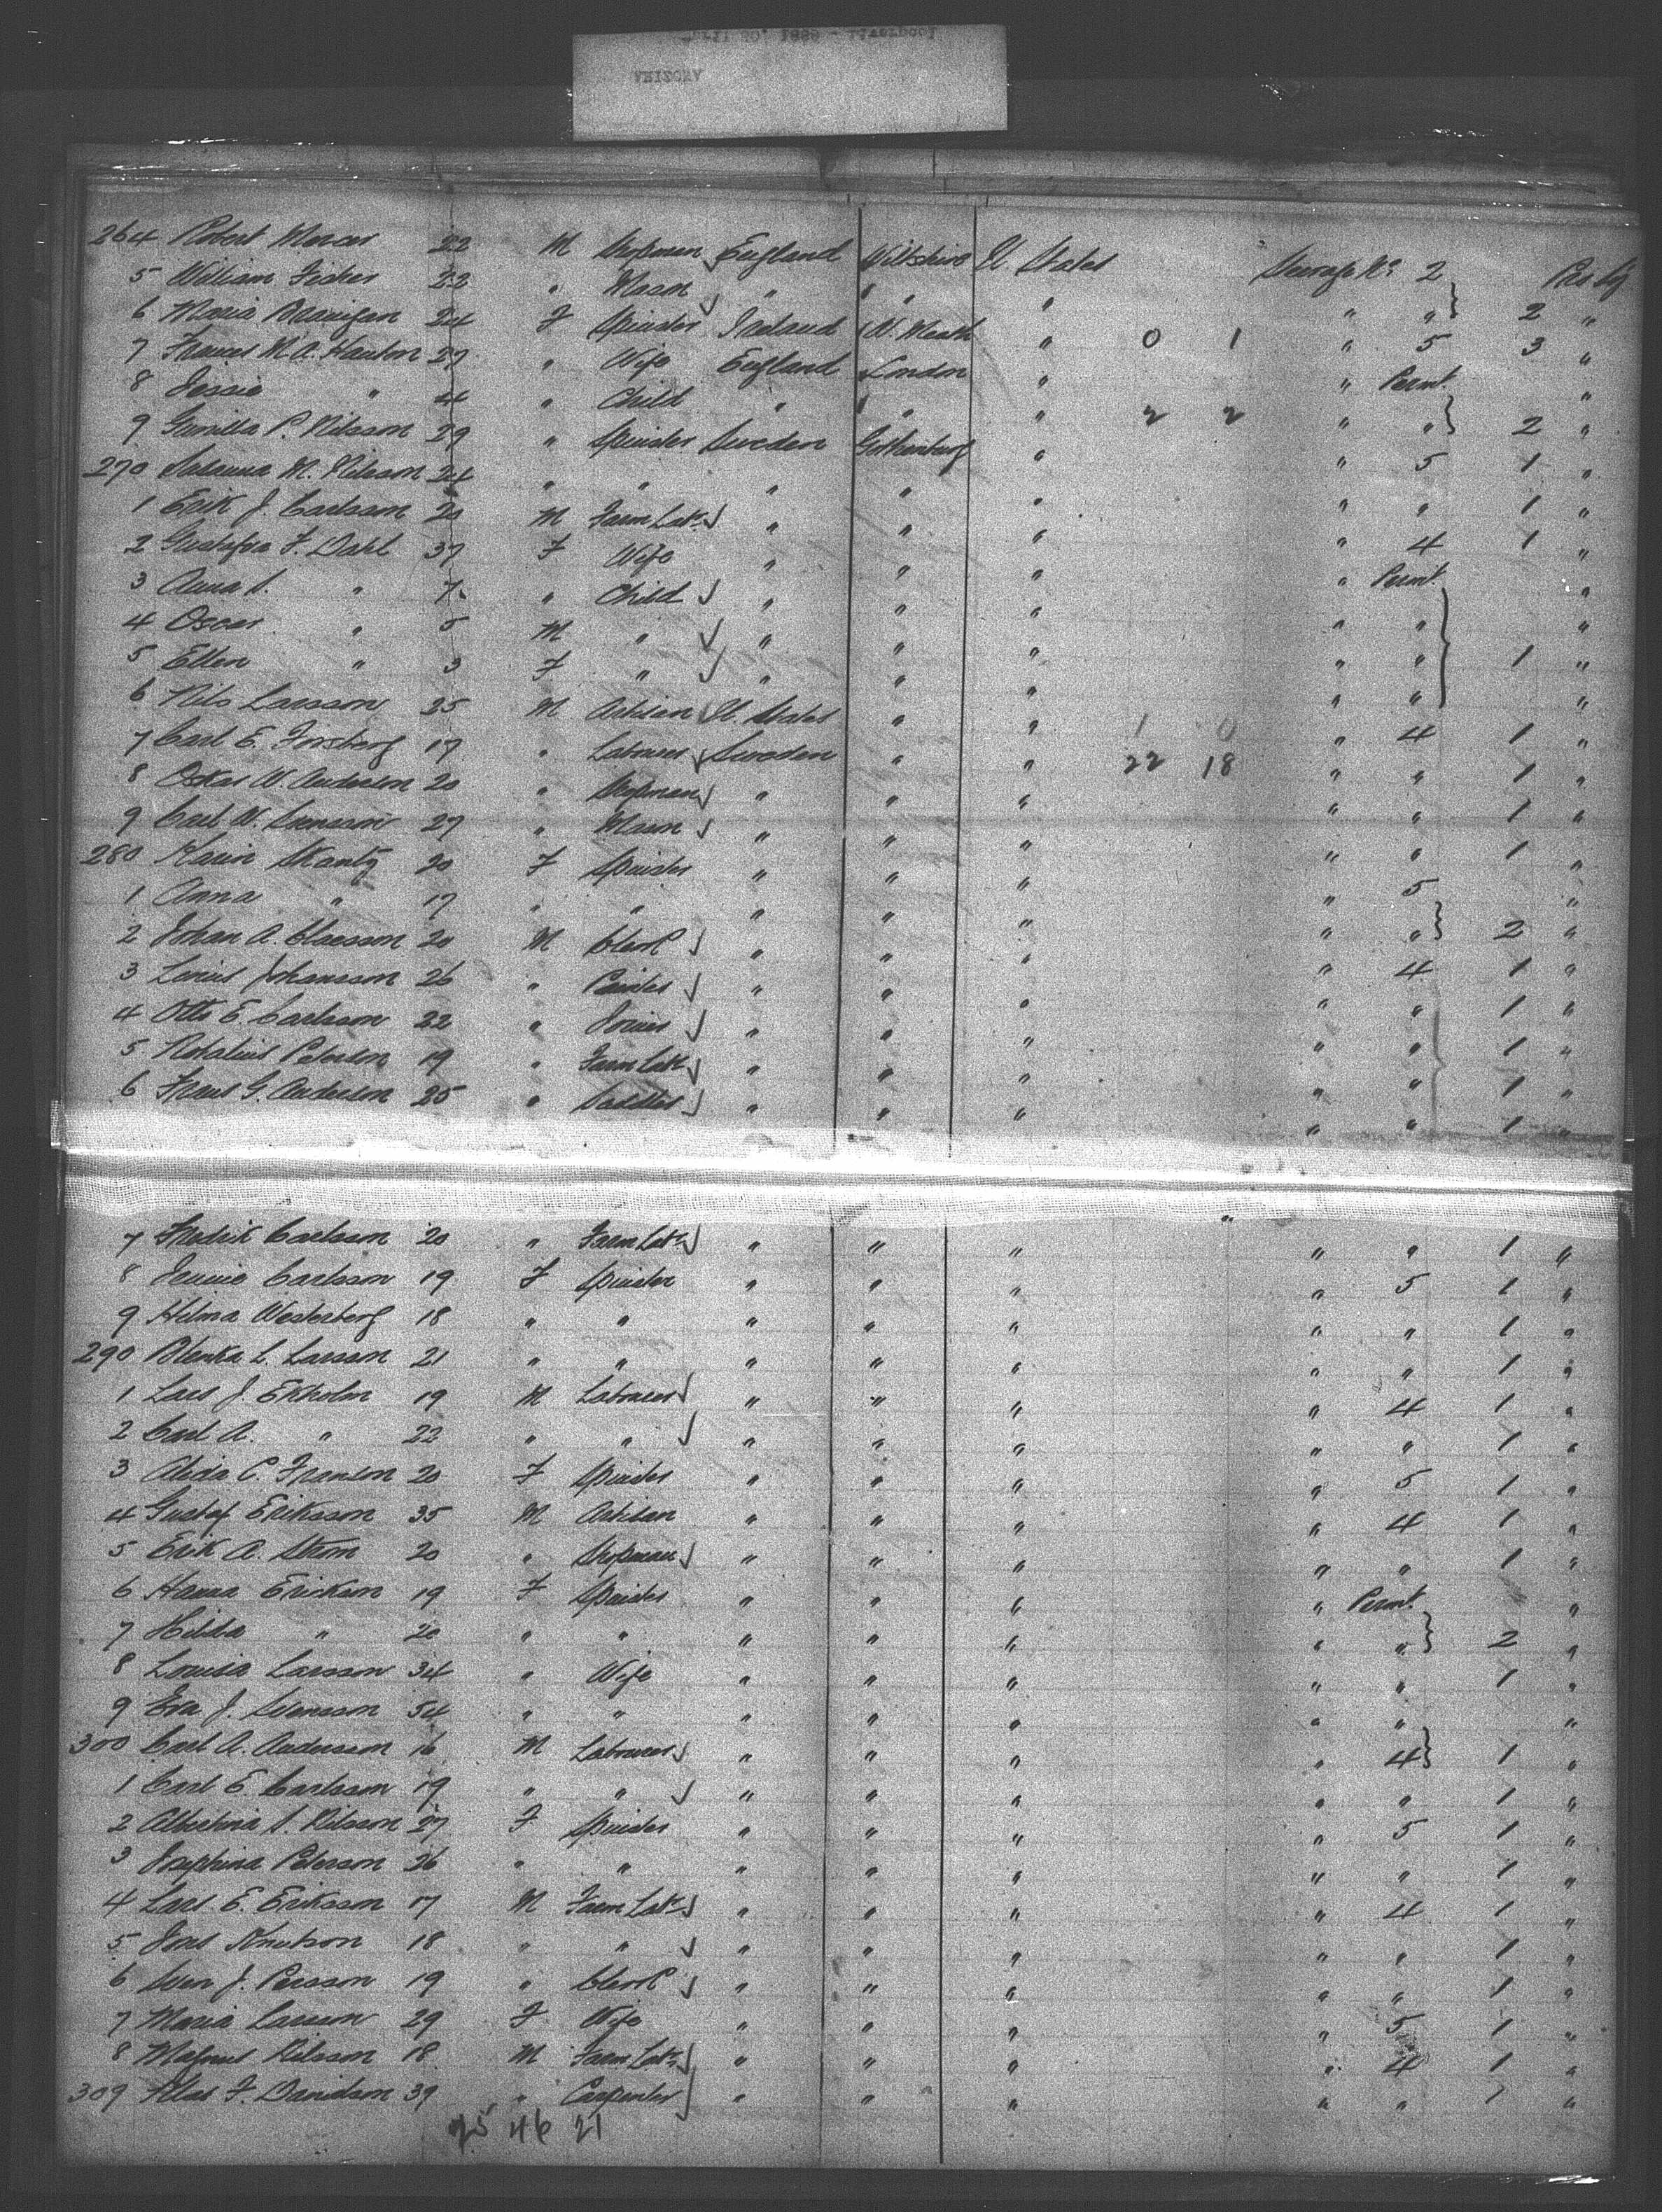 264 Robert Mercer 22 M Shopman England Wiltshire U States Steerage No 2 Pro to
5 William Fisher 22 " Mason " " " " " } 2 "
6 Maria Branigan 24 F Spinster Ireland W. Meath " 0 1 " 5 3 "
7 Frances M. A. Hanlon 27 " Wife England London " " Permt. "
8 Jessie " 4 " Child " " " 2 2 " " } 2 "
9 Gunilla P. Nilsson 29 " Spinster Sweden Gothenburg " " 5 1 "
270 M. Nilsson 24 " " " " " " " 1 "
1 Erik J. Carlsson 20 M Farm Labr " " " " 4 1 "
2 Gustafva F. Dahl 37 F Wife " " " " Permt. "
3 Anna S. " 7 " Child " " " " " "
4 Oscar " 5 M " " " " " " 1 "
5 Ellen " 3 F " " " " " " "
6 Nils Larsson 25 M Artisan U. States " " 1 0 " 4 1 "
7 Carl E. Forsberg 19 " Labourer Sweden " " 22 18 " " 1 "
8 Oskar W. Anderson 20 " Shopman " " " " " 1 "
9 Carl W. Svensson 27 " Mason " " " " " 1 "
280 Karin Skantz 20 F Spinster " " " " 5 "
1 Anna " 17 " " " " " " " } 2 "
2 Johan A. Claesson 20 M Clerk " " " " 4 1 "
3 Linus Johansson 26 " Painter " " " " " 1 "
4 Otto E. Carlsson 22 " Joiner " " " " " 1 "
5 Peterson 19 " Farm Labr " " " " " 1 "
6 Frans G. Anderson 25 " Saddler " " " " " 1 "
7 Fredrik Carlsson 20 " Farm Labr " " " " " 1 "
8 Jennie Carlsson 19 F Spinster " " " " 5 1 "
9 Hilma Westerberg 18 " " " " " " " 1 "
290 Blenka L. Larsson 21 " " " " " " " 1 "
1 Lars J. Ekholm 19 M Labourer " " " " 4 1 "
2 Carl A. " 22 " " " " " " " 1 "
3 Alida C. Franson 20 F Spinster " " " " 5 1 "
4 Gustaf Eriksson 35 M Artisan " " " " 4 1 "
5 Erik A. Strom 20 " Shopman " " " " " 1 "
6 Hanna Erickson 19 F Spinster " " " " Permt. "
7 Hilda " 20 " " " " " " " } 2 "
8 Lovisa Larsson 34 " Wife " " " " " 1 "
9 Eva J. Svensson 54 " " " " " " " "
300 Carl A. Andersson 16 M Labourer " " " " 4 } 1 "
1 Carl E. Carlsson 19 " " " " " " " 1 "
2 Albertina S. Nilsson 27 F Spinster " " " " 5 1 "
3 Josephina Peterson 26 " " " " " " " 1 "
4 Lars E. Eriksson 17 M Farm Labr " " " " 4 1 "
5 Jons Knutson 18 " " " " " " " 1 "
6 Sven J. Persson 19 " Clerk " " " " " 1 "
7 Maria Larsson 29 F Wife " " " " 5 1 "
8 Magnus Nilsson 18 M Farm Labr " " " " 4 1 "
309 Klas F. Davidson 39 " Carpenter " " " " " 1 "
25 46 21